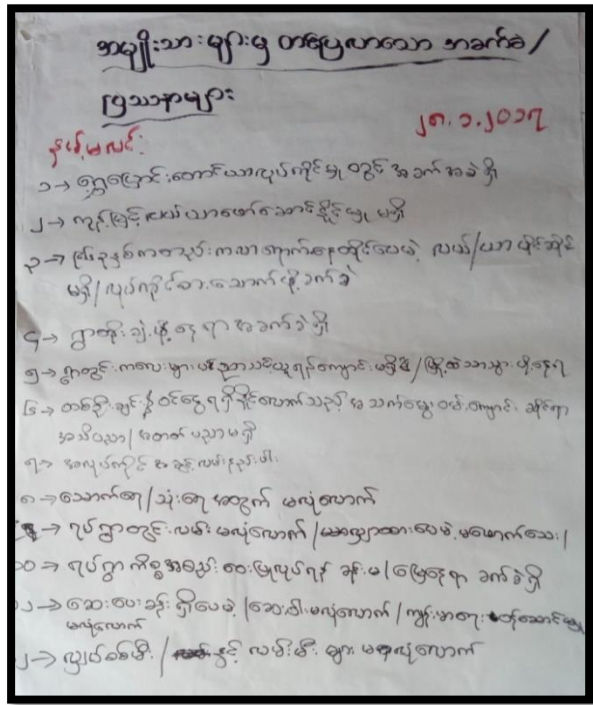 အမျိုးသားများမှ တင်ပြလာသော အခက်ခဲ/
ပြဿနာများ
၂၈.၁.၂၀၁၇
၁→ ရွှေ့ပြောင်းတောင်ယာလုပ်ကိုင်မှု တွင် အခက်အခဲရှိ
၂→ ကုန်းမြင့်လယ်ယာဖော်ဆောင်နိုင်မှု မရှိ
၃→ ကတည်းကလာရောက်နေထိုင်ပေမဲ့ လယ်/ယာ ပိုင်ဆိုင်
မရှိ/လုပ်ကိုင်စားသောက်ဖို့ခက်ခဲ
၄→ ရွာတိုးချဲ့ဖို့ နေရာ အခက်ခဲရှိ
၅→ ရွာတွင်းကလေးများ ပညာသင်ယူရန်ကျောင်းမရှိ/မြို့ထဲသာသွားဖို့နေရ
၆→ တစ်ဦးချင်းနဲ့ဝင်ငွေရရှိနိုင်လောက်သည့် အသက်မွေးဝမ်းကျောင်း ဆိုင်ရာ
အသိပညာ/အတတ်ပညာမရှိ
၇→ အလုပ်ကိုင်အခွင့်လမ်းနည်းပါး
၈→ သောက်ရေ/သုံးရေအတွက် မလုံလောက်
ရပ်ရွာတွင်းလမ်းမလုံလောက်/ထားပေမဲ့မဖောက်သေး/
၁၀→ ရပ်ရွာကိစ္စအစည်းဝေးပြုလုပ်ရန် ခန်းမ/မြေနေရာ ခက်ခဲရှိ
၁၁→ ဆေးပေးခန်းရှိပေမဲ့/ဆေးဝါးမလုံလောက်/ကျန်းမာရေးစောင့်ရှောက်မှု
မလုံလောက်
၂→ လျှပ်စစ်မီး/နှင့် လမ်းမီးများမလုံလောက်